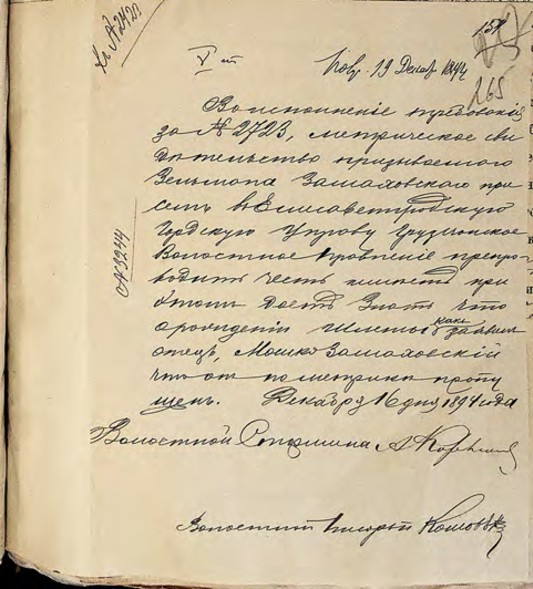 19 Декаб 1894
265
Во исполненіе требованія
за № 2723, метрическое сви
дѣтельство призываемого
Зельмана Замаховского при
семъ въ Елисаветградскую
Городскую Управу Грузчанское
Волостное Правленіе препро-
водить честь имѣетъ при
этомъ даетъ знать что
о рожденіи какъ заявилъ
отецъ, Мошко Замаховскій
что онъ по метрикѣ пропу
щенъ. Декабря 16 дня 1894 года
Волостной Старшина
Волостной Писарь
№ 3244